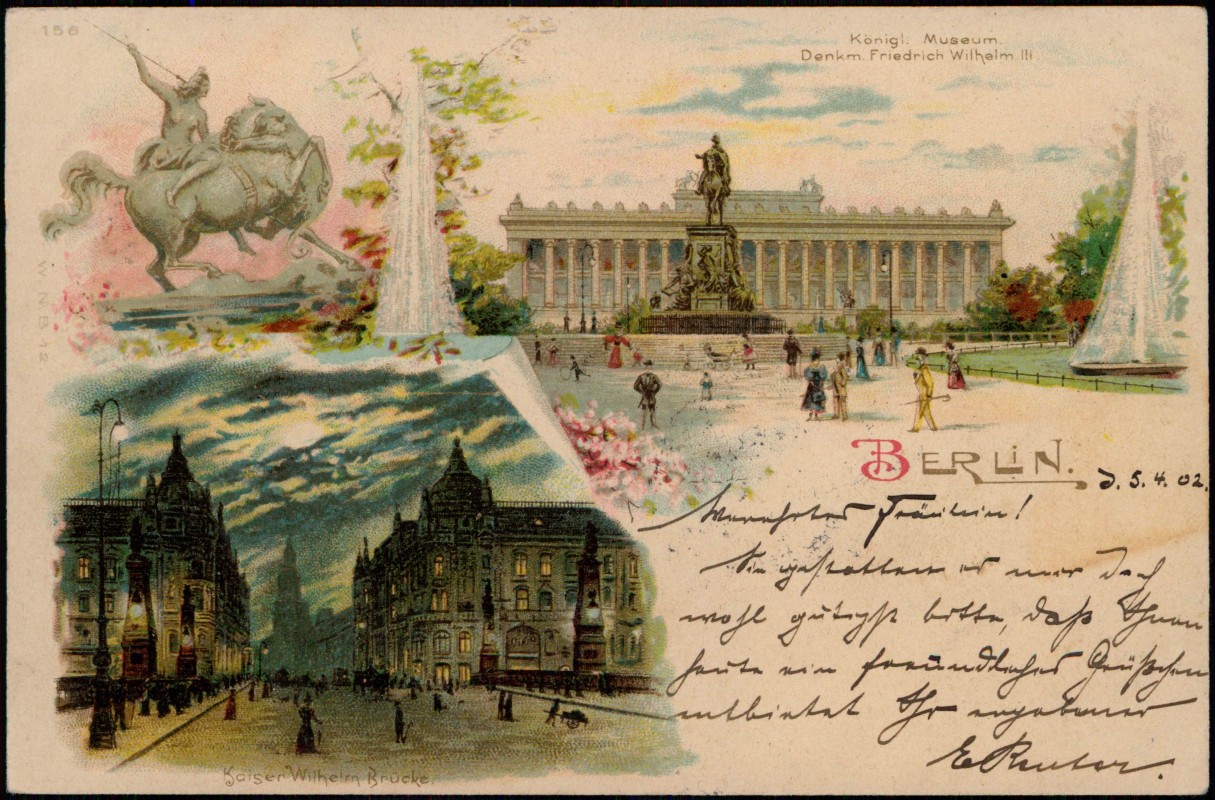 156
Königl. Museum.
Denkm. Friedrich Wilhelm III
W. N. B. 12
BERLIN.
d. 5. 4. 02.
Verehrtes Fräulein!
Sie gestatten es mir doch
wohl gütigst bitte, daß Ihnen
heute ein freundliches Grüßchen
entbietet Ihr ergebener
E Reuter.
Kaiser Wilhelm Brücke.